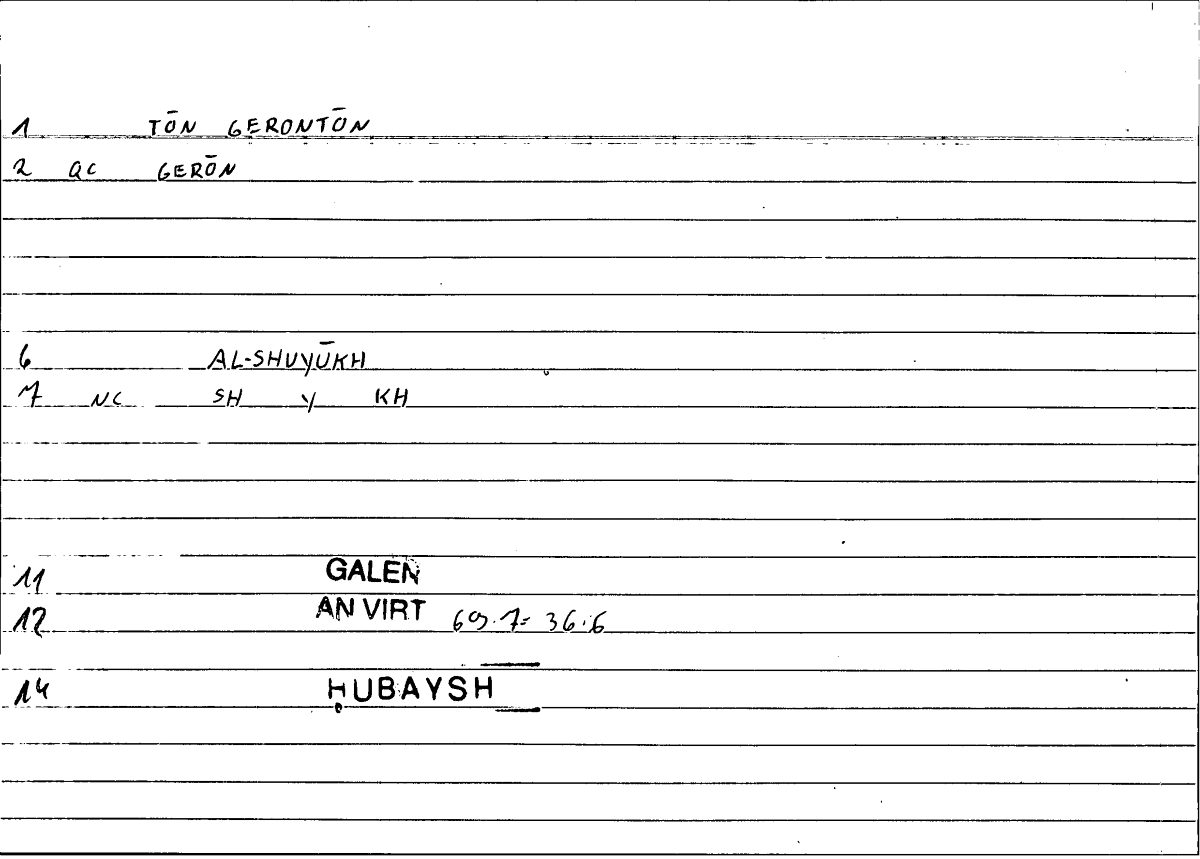 1 TŌN GERONTŌN
2 QC GERŌN
6 AL-SHUYŪKH
7 NC SH Y KH
11 GALEN
12 AN VIRT 69.7= 36.6
14 ḤUBAYSH